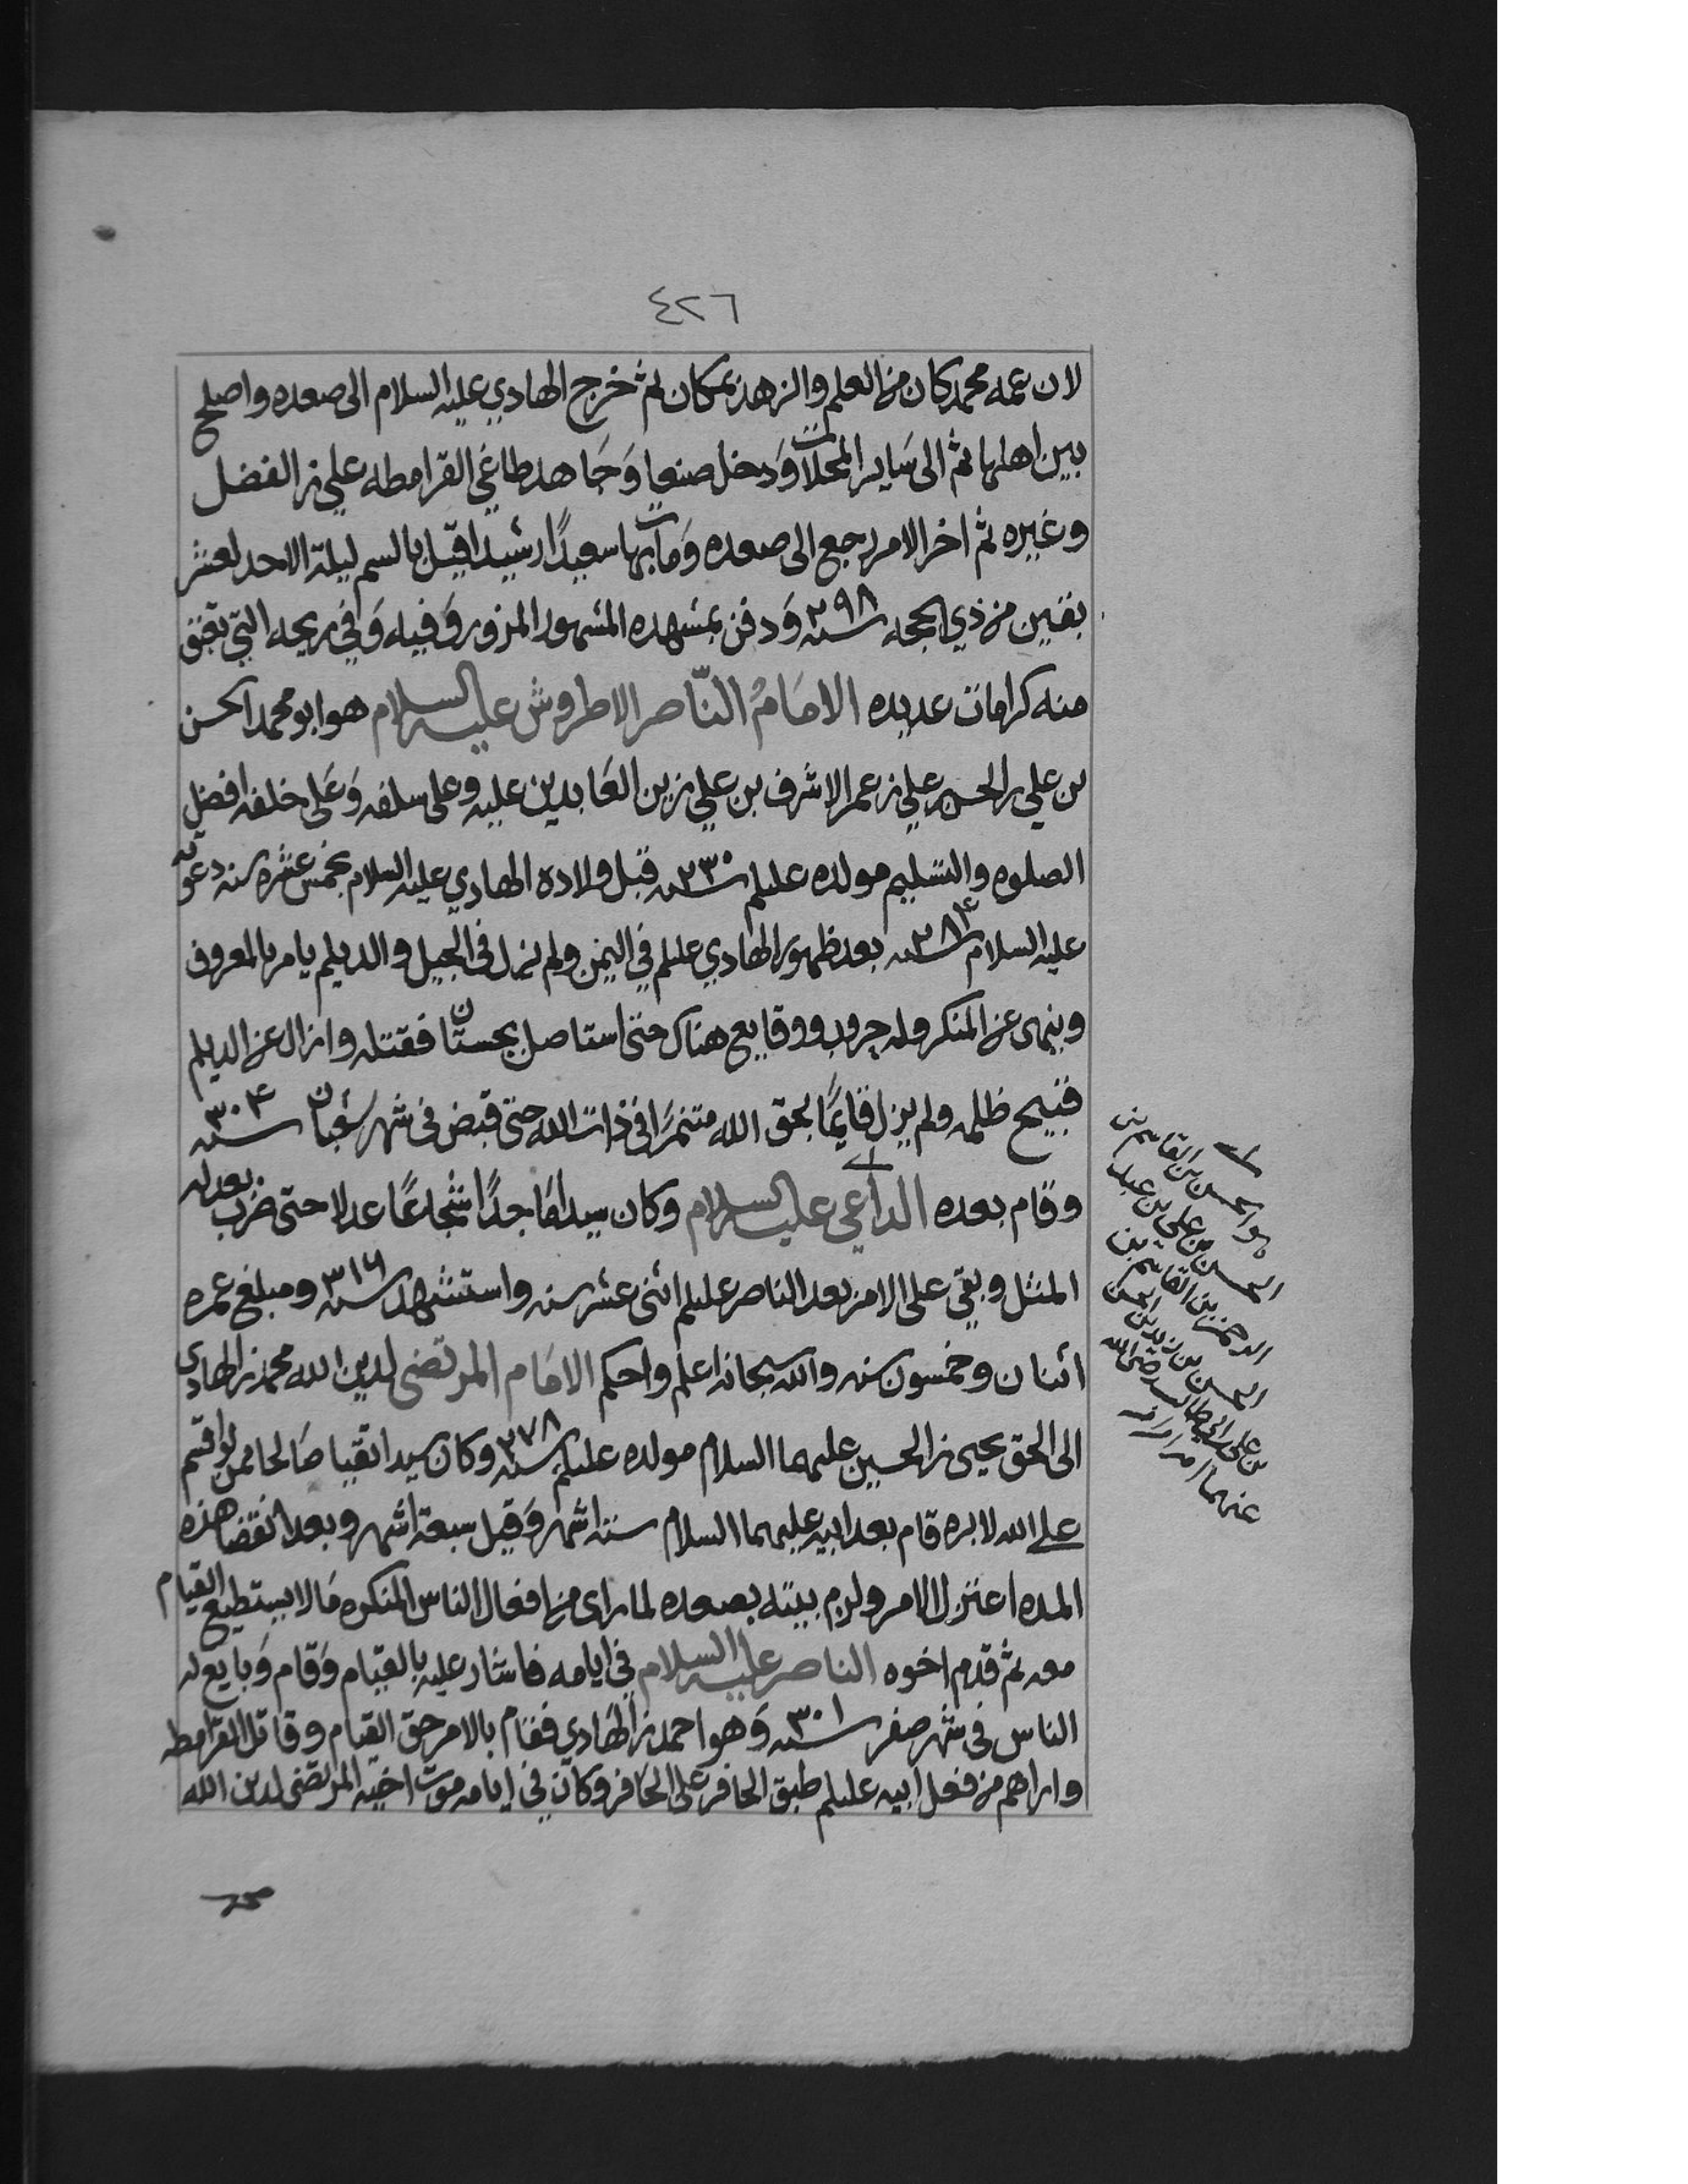 ٤٢٦
لان عمه محمد كان من العلم والزهد بمكان ثم خرج الهادي عليه السلام الى صعده واصلح
بين اهلها ثم الى ساير المحلات ودخل صنعا وجاهد طاغي القرامطه علي بن الفضل
وغيره ثم اخر الامر رجع الى صعده ومات بها سعيدًا رشيدا قيل بالسم ليلة الاحد لعشر
بقين من ذي الحجه سنه ٢٩٨ ودفن بمشهده المشهور المزور وفيه وفي ريحه التي تعبق
منه كرامات عديده الامَامُ النّاصر الاطروش عليه السلام هو ابو محمد الحسن
بن علي بن الحسن بن علي بن عمر الاشرف بن علي زين العابدين عليه وعلى سلفه وعلى خلفه افضل
الصلوه والتسليم مولده عليلم سنه ٢٣٠ قبل ولادة الهادي عليه السلام بخمس عشره سنه دعوته
عليه السلام سنه ٢٨٤ بعد ظهور الهادي عليلم في اليمن ولم يزل في الجيل والديلم يامر بالمعروف
وينهى عن المنكر وله حروب ووقايع هناك حتى استاصل بجستان فقتله وازال عن الديلم
قبيح ظلمه ولم يزل قايمًا بحق الله متنمرًا في ذات الله حتى قبض في شهر شعبان سنه ٣٠٤
وقام بعده الداعي عليه السلام وكان سيدا ماجدًا شجاعًا عدلا حتى ضرب بعدله
المثل وبقي على الامر بعد الناصر عليلم اثنى عشر سنه واستشهد سنه ٣١٦ ومبلغ عمره
اثنان وخمسون سنه والله سبحانه اعلم واحكم الامام المرتضى لدين الله محمد بن الهادي
الى الحق يحيى بن الحسين عليهما السلام مولده عليلم سنه ٢٧٨ وكان سيدا تقيا صالحا ممن لو اقسم
على الله لابره قام بعد ابيه عليهما السلام سته اشهر وقيل سبعة اشهر وبعد انقضا هذه
المده اعتزل الامر ولزم بيته بصعده لما راى من افعال الناس المنكره ما لا يستطيع القيام
معه ثم قدم اخوه الناصر عليه السلام في ايامه فاشار عليه بالقيام وقام وبايع له
الناس في شهر صفر سنه ٣٠١ وهو احمد بن الهادي فقام بالامر حق القيام وقاتل القرامطه
واراهم من فعل ابيه عليلم طبق الحافر على الحافر وكان في ايامه موت اخيه المرتضى لدين الله
هو الحسن بن القاسم بن
الحسن بن علي بن عبد
الرحمن بن القاسم بن
الحسن بن زيد بن الحسن
بن علي بن ابي طالب رضي الله
عنهما
محمد